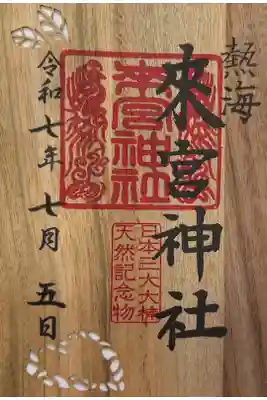 熱海
來宮神社
來宮神社
日本三大大楠
天然記念物
令和七年七月五日